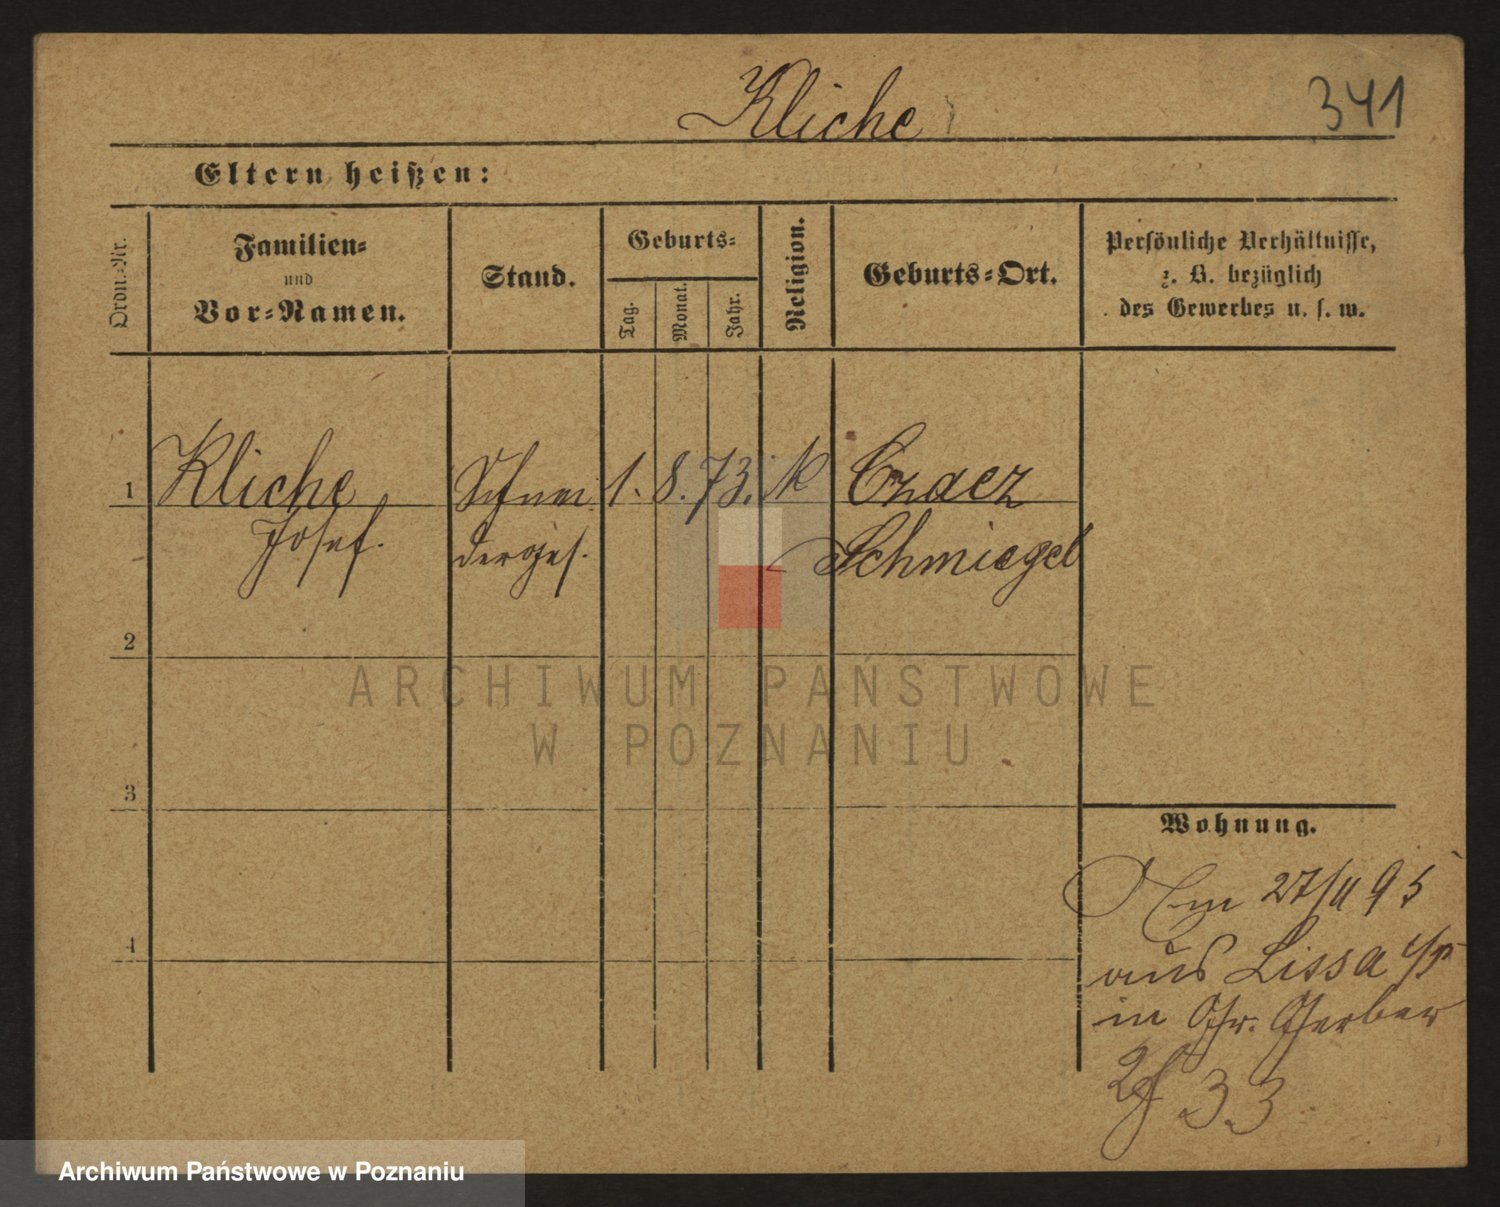 Kliche
341
Eltern heißen:
Ordn.-Nr.
Familien-
und
Vor-Namen.
Stand.
Geburts-
Tag.
Monat.
Jahr.
Religion.
Geburts-Ort.
Persönliche Verhältnisse,
z. B. bezüglich
des Gewerbes u. s. w.
1 Kliche Schnei 1. 8. 73. k Czacz
Josef. derges. Schmiegel
2
ARCHIWUM PAŃSTWOWE
W POZNANIU
3
Wohnung.
Am 27/11 95
4
aus Lissa
in Gr. Gerber
33
Archiwum Państwowe w Poznaniu